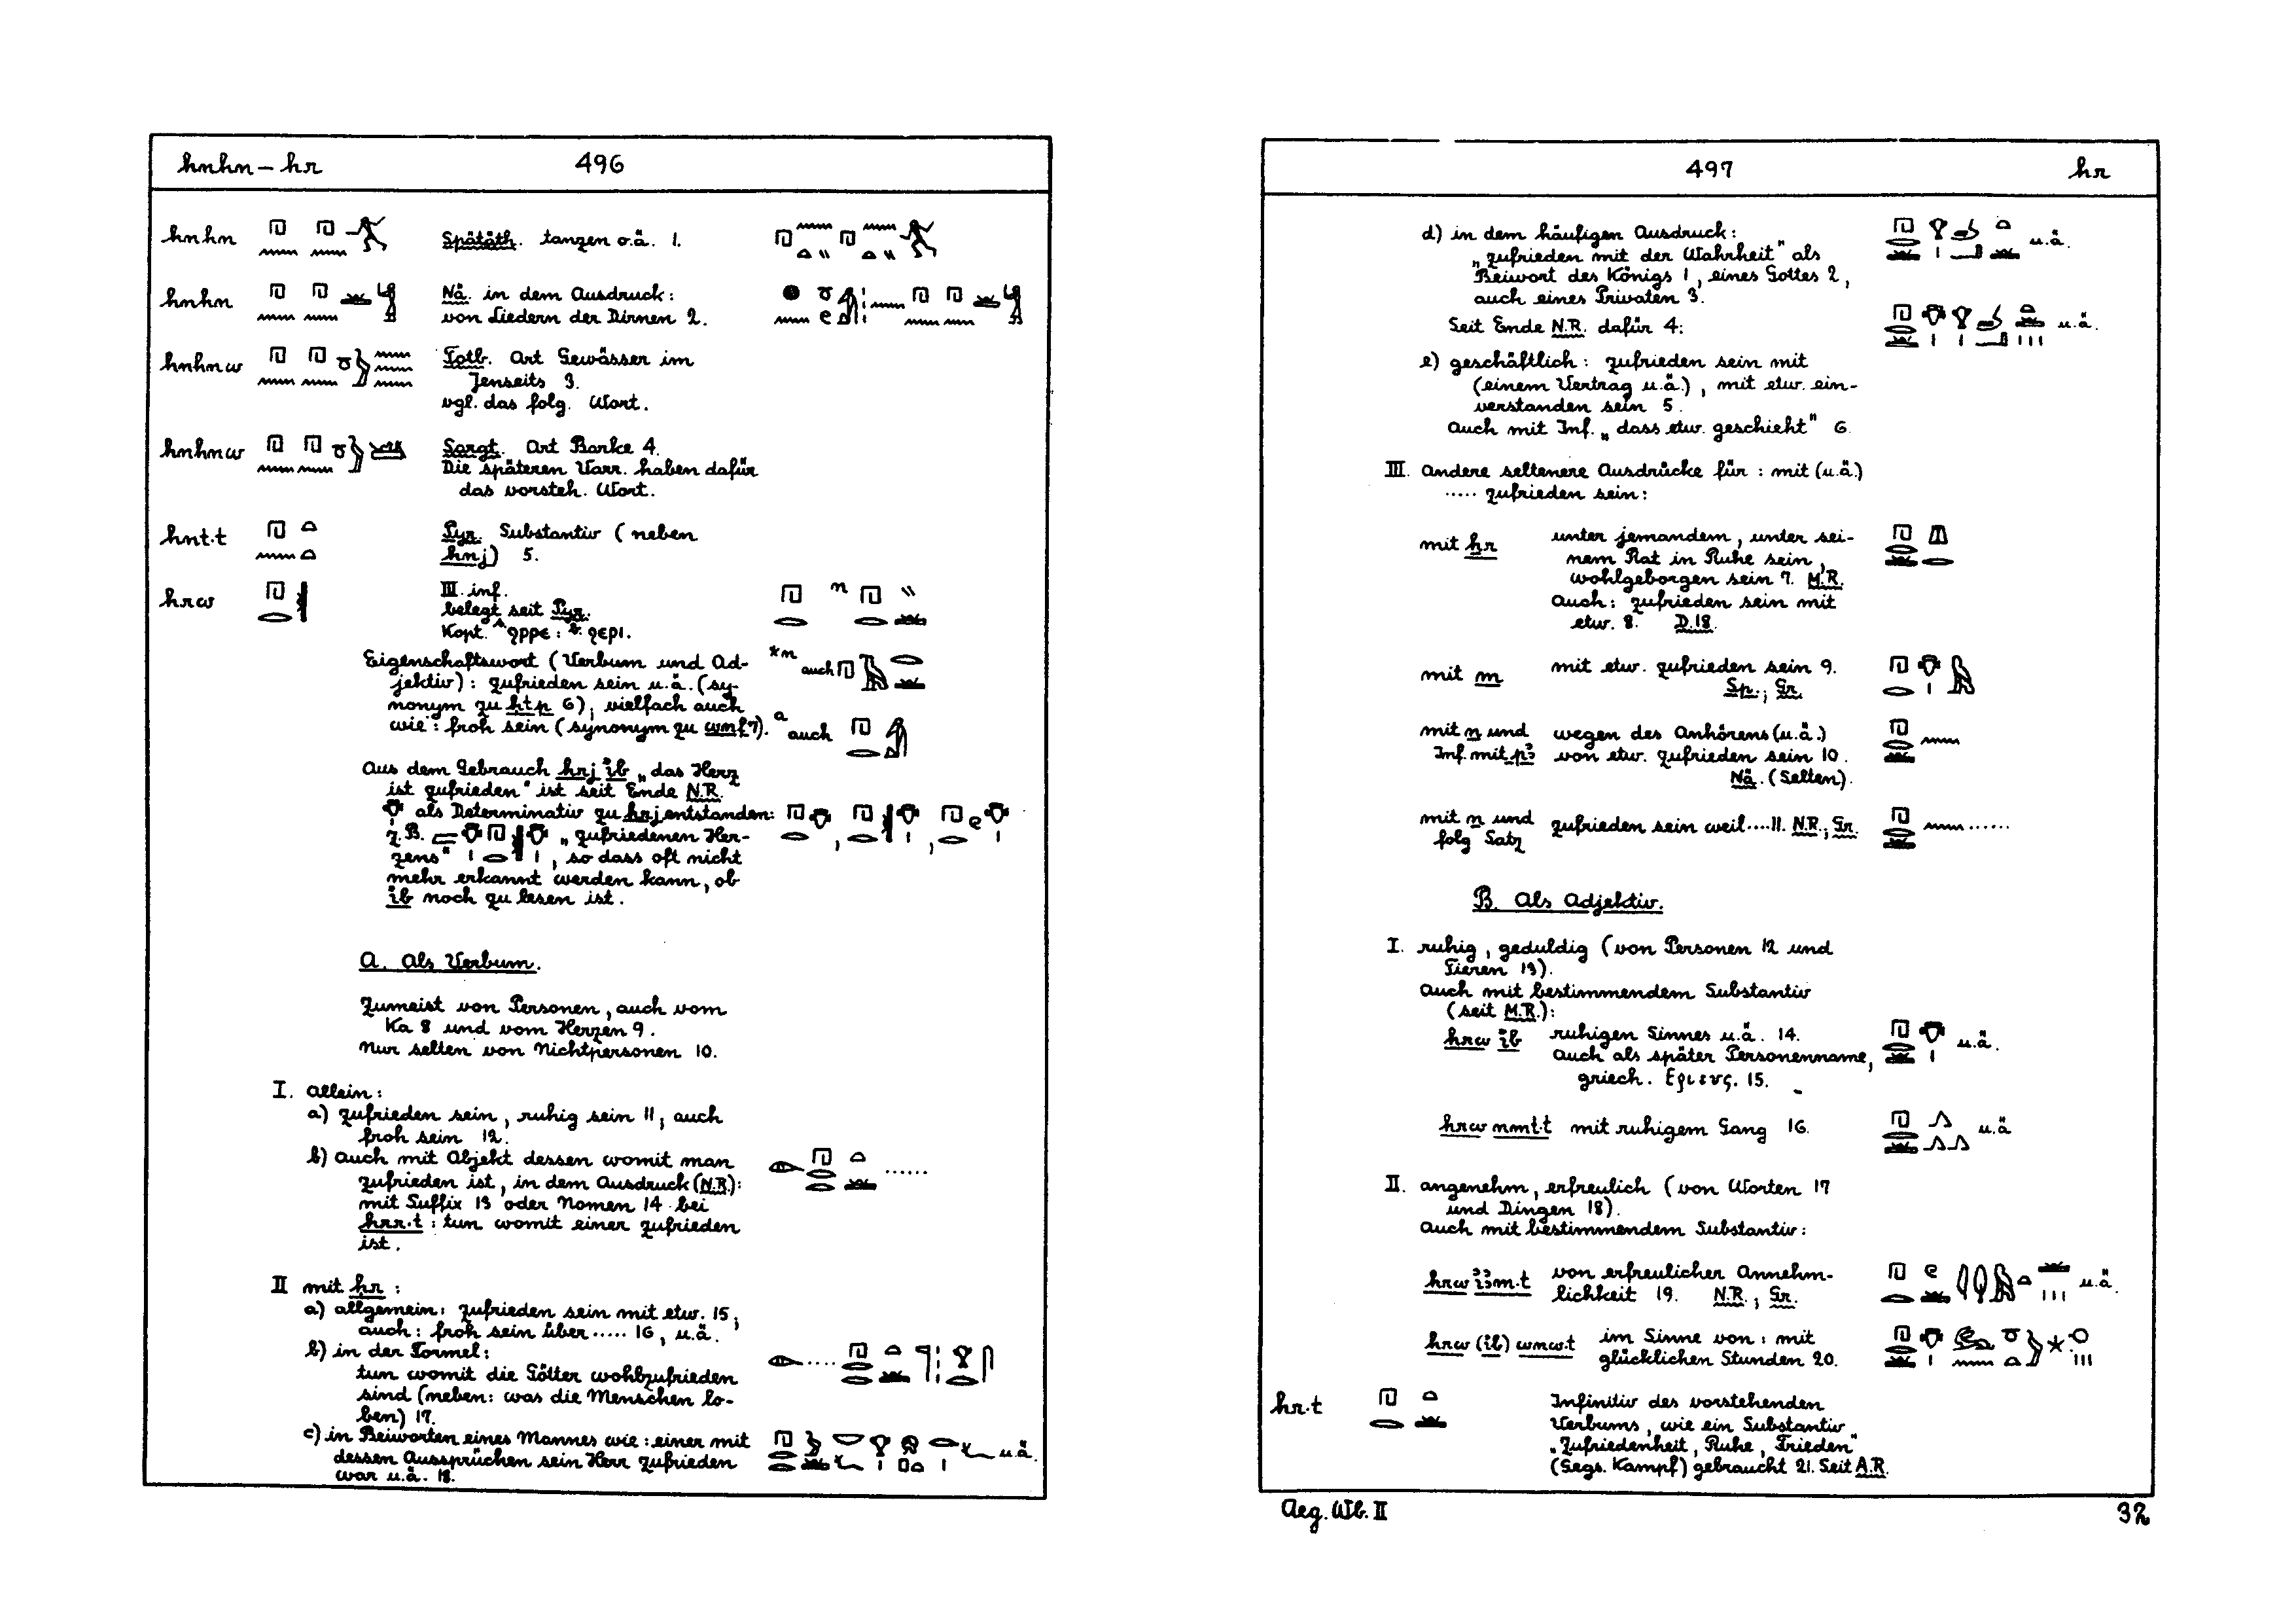 hnhn – hr 496
hnhn Spätäth. tanzen o.ä. 1.
hnhn Nä. in dem Ausdruck:
von Liedern der Dirnen 2.
hnhnw Totb. Art Gewässer im
Jenseits 3.
vgl. das folg. Wort.
hnhnw Sargt. Art Barke 4.
Die späteren Varr. haben dafür
das vorsteh. Wort.
hnt.t Pyr. Substantiv (neben
hnj) 5.
hrw III. inf.
belegt seit Pyr.
Kopt. ᴬ ϩⲣⲣⲉ : ᴮ ϩⲉⲣⲓ.
Eigenschaftswort (Verbum und Ad-
jektiv): zufrieden sein u.ä. (sy- auch
nonym zu ḥtp 6); vielfach auch
wie: froh sein (synonym zu wnf 7). auch
Aus dem Gebrauch hrj ib „das Herz
ist zufrieden" ist seit Ende N.R.
als Determinativ zu hrj entstanden:
z.B. „zufriedenen Her-
zens", so dass oft nicht
mehr erkannt werden kann, ob
ib noch zu lesen ist.
A. Als Verbum.
Zumeist von Personen, auch vom
Ka 8 und vom Herzen 9.
Nur selten von Nichtpersonen 10.
I. allein:
a) zufrieden sein, ruhig sein 11; auch
froh sein 12.
b) auch mit Objekt dessen womit man
zufrieden ist, in dem Ausdruck (N.R.): ......
mit Suffix 13 oder Nomen 14 bei
hrr.t: tun womit einer zufrieden
ist.
II mit ḥr:
a) allgemein: zufrieden sein mit etw. 15;
auch: froh sein über ..... 16, u.ä.
b) in der Formel:
tun womit die Götter wohlzufrieden
sind (neben: was die Menschen lo-
ben) 17.
c) in Beiworten eines Mannes wie: einer mit
dessen Aussprüchen sein Herr zufrieden u.ä.
war u.ä. 18.
497 hr
d) in dem häufigen Ausdruck:
„zufrieden mit der Wahrheit" als u.ä.
Beiwort des Königs 1, eines Gottes 2,
auch eines Privaten 3.
Seit Ende N.R. dafür 4: u.ä.
e) geschäftlich: zufrieden sein mit
(einem Vertrag u.ä.), mit etw. ein-
verstanden sein 5.
Auch mit Inf. „dass etw. geschieht" 6
III. andere seltenere Ausdrücke für: mit (u.ä.)
..... zufrieden sein:
mit ẖr unter jemandem, unter sei-
nem Rat in Ruhe sein,
wohlgeborgen sein 7. M.R.
Auch: zufrieden sein mit
etw. 8. D.18.
mit m mit etw. zufrieden sein 9.
Sp.; Gr.
mit n und wegen des Anhörens (u.ä.)
Inf. mit pꜣ von etw. zufrieden sein 10.
Nä. (Selten).
mit n und zufrieden sein weil .... 11. N.R.; Gr. ......
folg Satz
B. Als Adjektiv.
I. ruhig, geduldig (von Personen 12 und
Tieren 13).
Auch mit bestimmendem Substantiv
(seit M.R.):
hrw ib ruhigen Sinnes u.ä. 14. u.ä.
Auch als später Personenname,
griech. Εριευς. 15.
hrw nmt.t mit ruhigem Gang 16. u.ä
II. angenehm, erfreulich (von Worten 17
und Dingen 18).
Auch mit bestimmendem Substantiv:
hrw iꜣm.t von erfreulicher Annehm- u.ä.
lichkeit 19. N.R.; Gr.
hrw (ib) wnw.t im Sinne von: mit
glücklichen Stunden 20.
hr.t Infinitiv des vorstehenden
Verbums, wie ein Substantiv
„Zufriedenheit, Ruhe, Frieden"
(Gegs. Kampf) gebraucht 21. Seit A.R.
Aeg. Wb. II 32